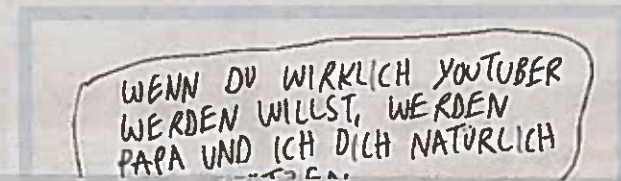 WENN DU WIRKLICH YOUTUBER
WERDEN WILLST, WERDEN
PAPA UND ICH DICH NATÜRLICH